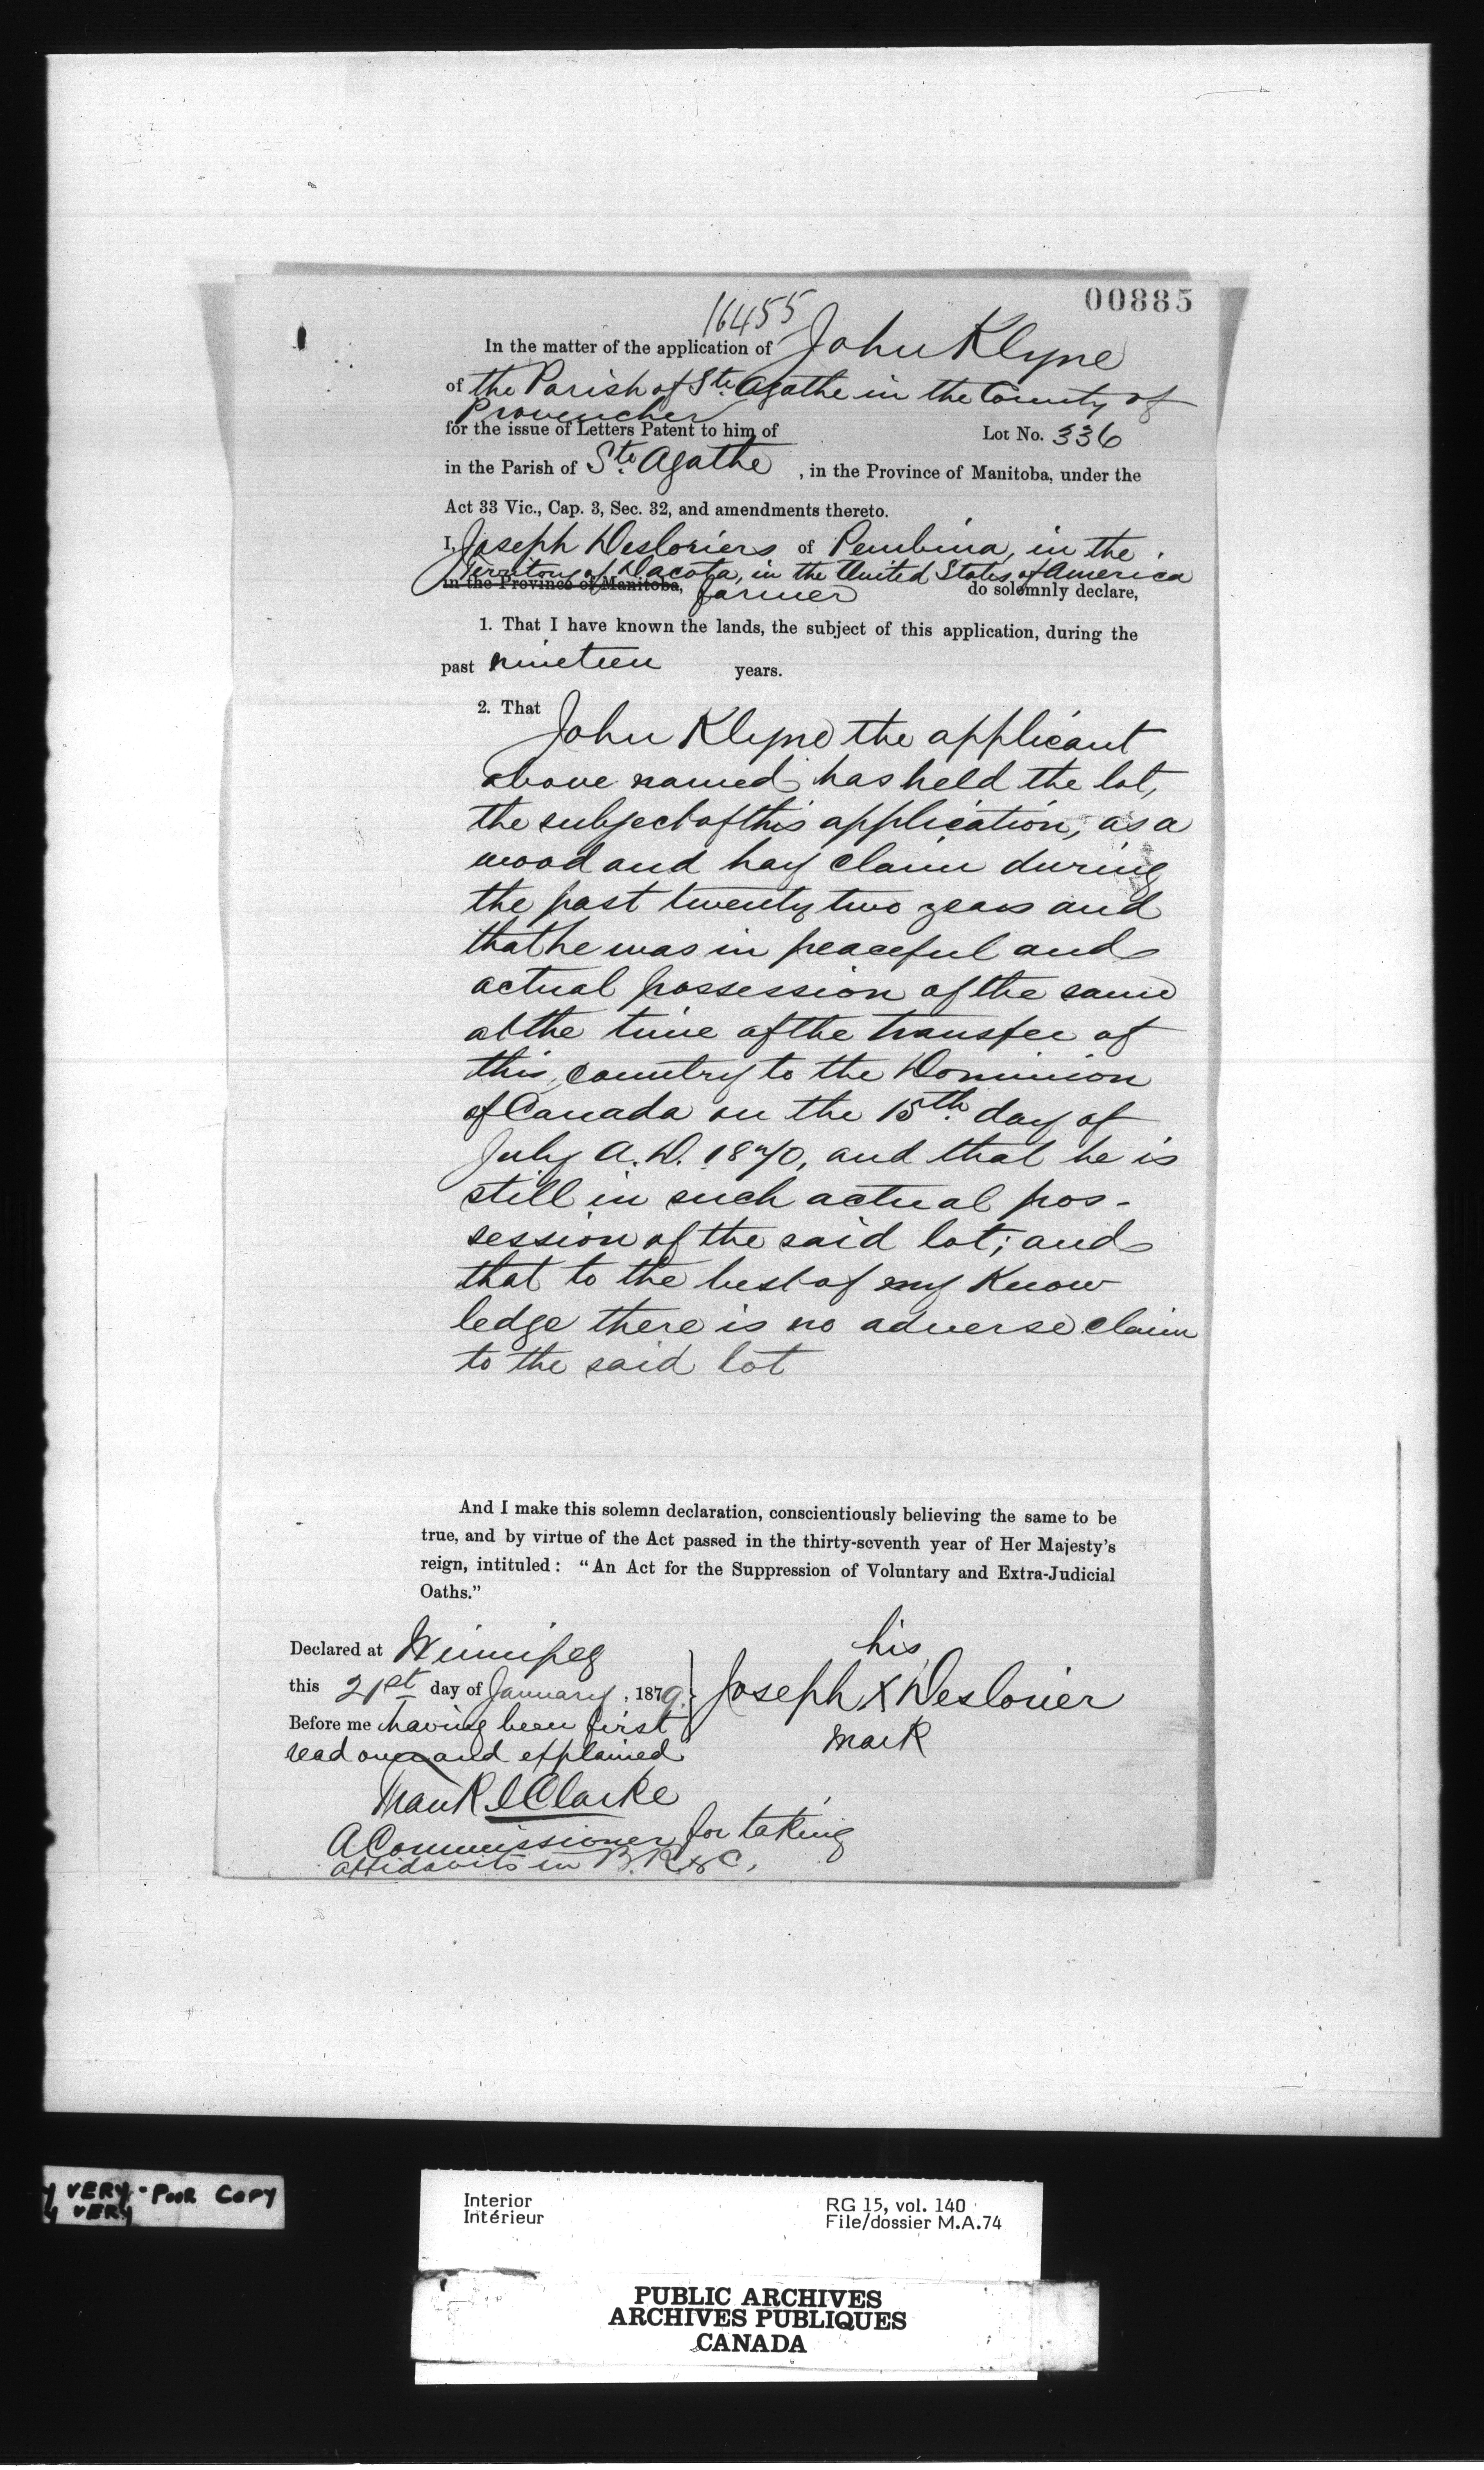 00885
16455
In the matter of the application of John Klyne
of the Parish of Ste. Agathe in the County of
Provencher
for the issue of Letters Patent to him of Lot No. 336
in the Parish of Ste. Agathe, in the Province of Manitoba, under the
Act 33 Vic., Cap. 3, Sec. 32, and amendments thereto.
I, Joseph Desloriers of Pembina, in the
Territory of Dacota, in the United States of America
in the Province of Manitoba, farmer do solemnly declare,
1. That I have known the lands, the subject of this application, during the
past nineteen years.
2. That John Klyne the applicant
above named has held the lot,
the subject of this application, as a
wood and hay claim during
the past twenty two years and
that he was in peaceful and
actual possession of the same
at the time of the transfer of
this country to the Dominion
of Canada on the 15th. day of
July A.D. 1870, and that he is
still in such actual pos-
session of the said lot; and
that to the best of my Know
ledge there is no adverse claim
to the said lot
And I make this solemn declaration, conscientiously believing the same to be
true, and by virtue of the Act passed in the thirty-seventh year of Her Majesty's
reign, intituled: "An Act for the Suppression of Voluntary and Extra-Judicial
Oaths."
Declared at Winnipeg
this 21st day of January, 1879.
Before me having been first
read over and explained
his
Joseph X Deslorier
mark
Frank I Clarke
A Commissioner for taking
affidavits in B.R. &c.
VERY - POOR COPY
VERY
Interior
Intérieur
RG 15, vol. 140
File/dossier M.A.74
PUBLIC ARCHIVES
ARCHIVES PUBLIQUES
CANADA